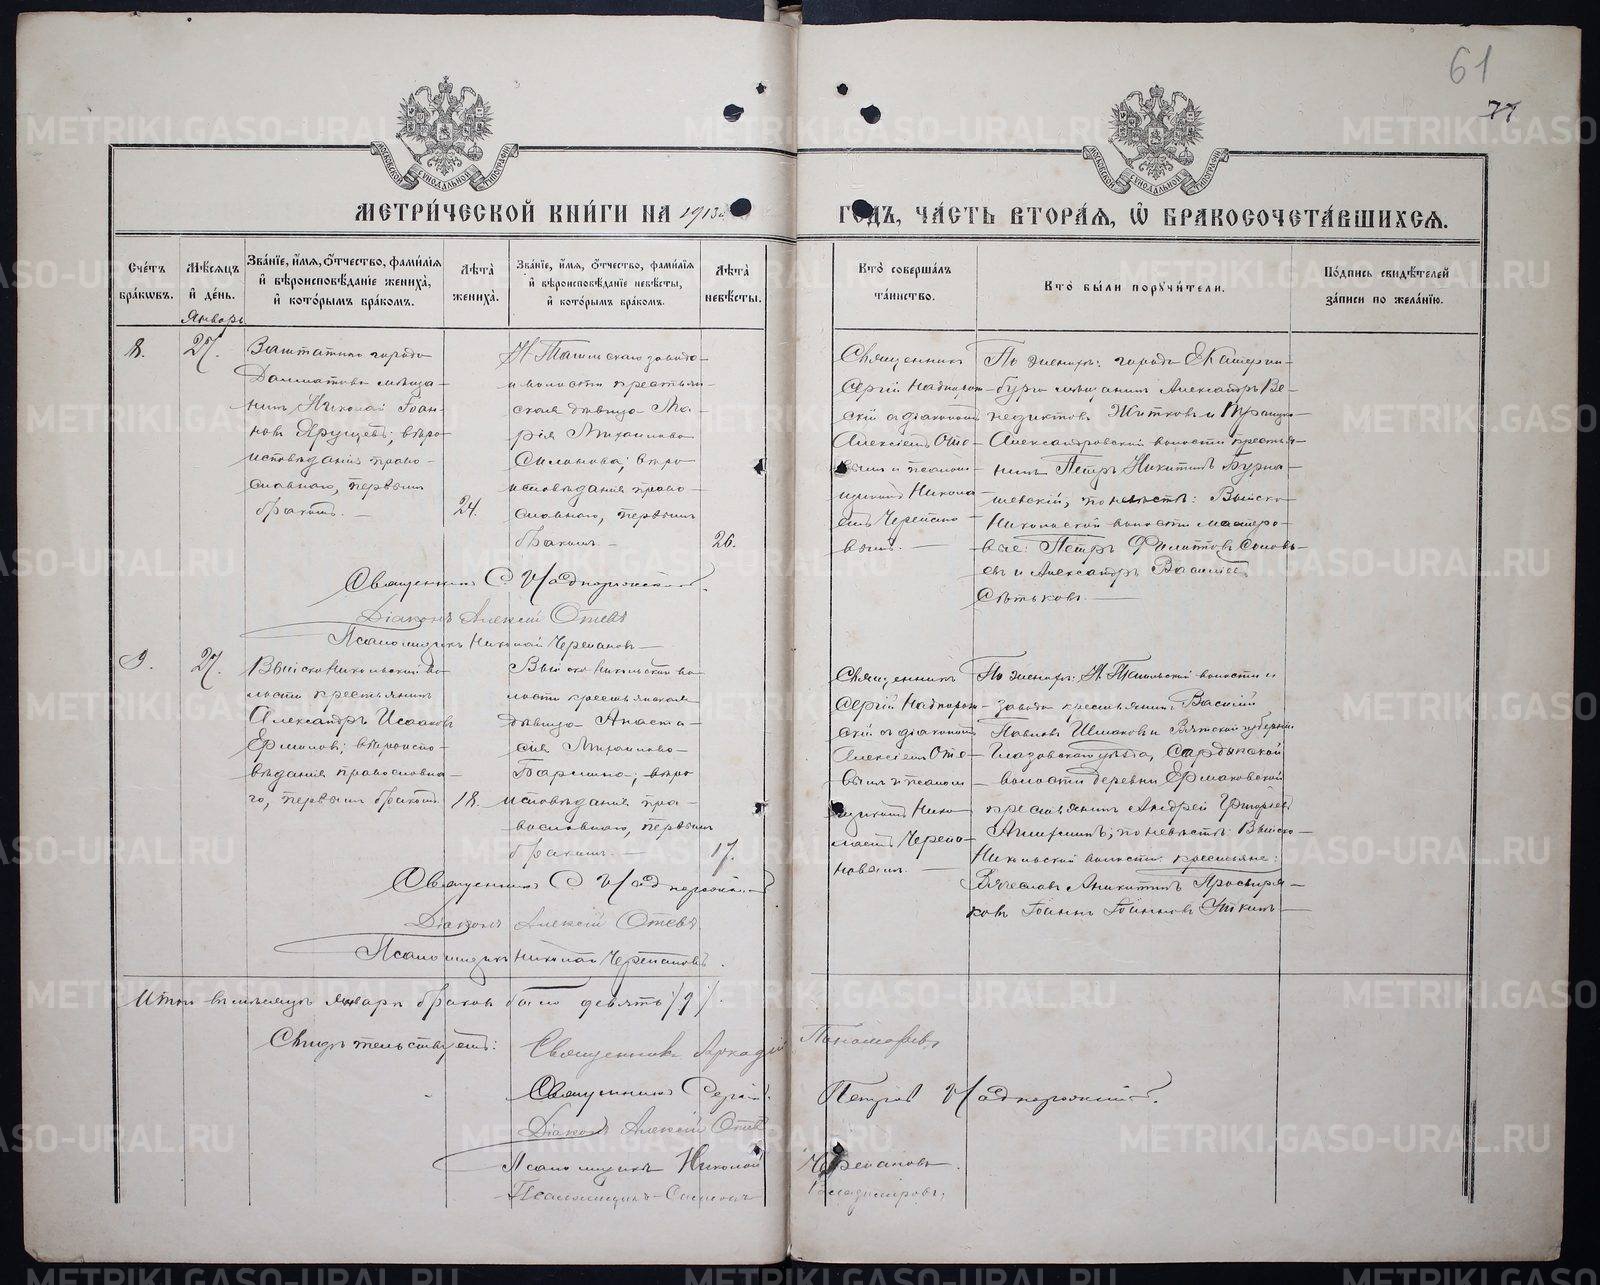 61
77
МЕТРИ́ЧЕСКОЙ КНИ́ГИ НА 1913
ГОДЪ, ЧА́СТЬ ВТОРА́Ѧ, Ѽ БРАКОСОЧЕТА́ВШИХСѦ.
Сче́тъ бра́кѡвъ.
Мѣ́сѧцъ и҆ де́нь.
Зва́нїе, и҆́мѧ, ѻ҆́тчество, фами́лїѧ и҆ вѣроисповѣ́данїе жениха̀, и҆ кото́рымъ бра́комъ.
Лѣ́та жениха̀.
Зва́нїе, и҆́мѧ, ѻ҆́тчество, фами́лїѧ и҆ вѣроисповѣ́данїе невѣ́сты, и҆ кото́рымъ бра́комъ.
Лѣ́та невѣ́сты.
Кто̀ соверша́лъ та́инство.
Кто̀ бы́ли порꙋчи́тели.
По́дпись свидѣ́телей за́писи по жела́нїю.
Январь
8.
27.
Заштатнаго города
Далматова мѣща-
нинъ Николай Іоан-
новъ Ярушевъ; вѣро-
исповѣданія право-
славнаго, первымъ
бракомъ. —
24.
Н. Тагильскаго завода
и волости крестьян-
ская дѣвица Ма-
рія Михайлова
вѣро-
исповѣданія право-
славнаго, первымъ
бракомъ. —
26.
Священникъ
Сергій Надпорож-
скій съ діакономъ
Алексіемъ Оте-
вымъ и псалом-
щикомъ Никола-
емъ Черепано-
вымъ. —
По женихѣ: города Екатерин-
бурга мѣщанинъ Александръ Ве-
недиктовъ Житковъ и
Александровской волости крестья-
нинъ Петръ Никитинъ Бурна-
шевскій, по невѣстѣ: Выйско-
Никольской волости мастеро-
вые: Петръ Филипповъ Соловь-
евъ и Александръ Васильевъ
Сѣтьковъ. —
Священникъ С. Надпорожскій.
Діаконъ Алексій Отевъ
Псаломщикъ Николай Черепановъ
9.
27.
Выйско-Никольской во-
лости крестьянинъ
Александръ Исааковъ
Ермиловъ; вѣроиспо-
вѣданія православна-
го, первымъ бракомъ.
18.
Выйско-Никольской во-
лости крестьянская
дѣвица Анаста-
сія Михайлова
вѣро-
исповѣданія пра-
вославнаго, первымъ
бракомъ. —
17.
Священникъ
Сергій Надпорож-
скій съ діакономъ
Алексіемъ Оте-
вымъ и псалом-
щикомъ Нико-
лаемъ Черепа-
новымъ. —
По женихѣ: Н. Тагильской волости и
завода крестьянинъ Василій
Павловъ Шмаковъ и Вятской губерніи
Глазовскаго уѣзда, Сардыкской
волости деревни Ермаковской
крестьянинъ Андрей Григорьевъ
по невѣстѣ: Выйско-
Никольской волости крестьяне:
Вячеславъ Аникитинъ Просвиря-
ковъ Іоаннъ Іоанновъ Уткинъ —
Священникъ С. Надпорожскій
Діаконъ Алексій Отевъ
Псаломщикъ Николай Черепановъ.
Итого въ мѣсяцѣ январѣ браковъ было девять /9/.
Свидѣтельствуемъ:
Священникъ Аркадій Пономаревъ
Священникъ Сергій Петровъ Надпорожскій.
Діаконъ Алексій Отевъ
Псаломщикъ Николай Черепановъ.
Псаломщикъ Симеонъ Владиміровъ.
METRIKI.GASO-URAL.RU